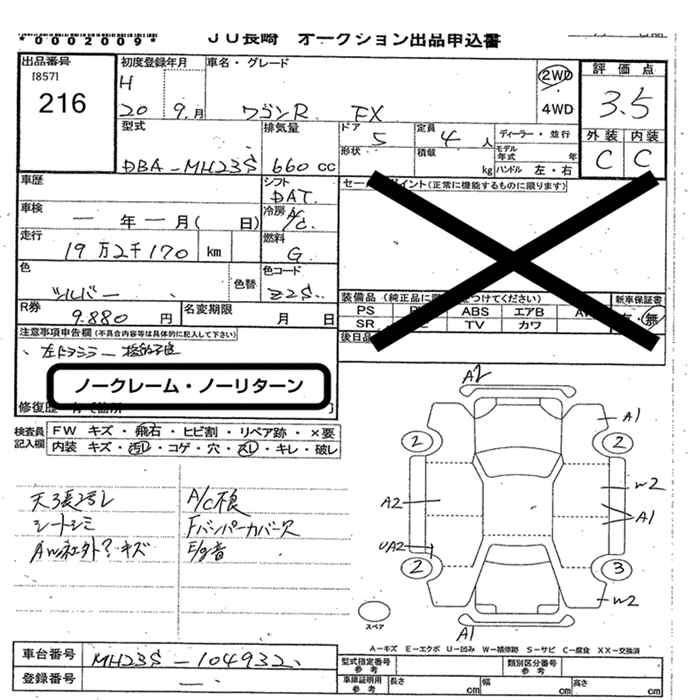 *0002009*
JU長崎 オークション出品申込書
出品番号
[857]
216
初度登録年月
H
20 9月
車名・グレード
ワゴンR FX
2WD
4WD
評価点
3.5
外装 内装
C C
型式
DBA-MH23S
排気量
660 CC
ドア 5
形状
定員 4人
積載 kg
ディーラー・並行
モデル年式 年
ハンドル 左・右
車歴
シフト
DAT
車検
一年一月( 日)
冷房 A/C
走行
19万2千170 km
燃料
G
色
シルバー
色替
色コード
Z2S
R券
9.880 円
名変期限
月 日
セー ポイント(正常に機能するものに限ります)
装備品(純正品に つけてください)
新車保証書
PS ABS エアB
SR TV カワ
・無
後日品
注意事項申告欄(不具合内容等は具体的に記入して下さい)
左ドアミラー
ノークレーム・ノーリターン
修復歴
検査員
記入欄
FW キズ・飛石・ヒビ割・リペア跡・×要
内装 キズ・汚レ・コゲ・穴・スレ・キレ・破レ
シートシミ
AW社外?キズ
A/C不良
Fバンパーカバー欠
E/g音
A2
A1
2
2
W2
A2
A1
UA2
2
3
W2
A1
スペア
A-キズ E-エクボ U-凹み W-補修跡 S-サビ C-腐食 XX-交換済
車台番号
MH23S-104932
登録番号
型式指定番号
参考
類別区分番号
参考
車庫証明用
参考
長さ cm 幅 cm 高さ cm